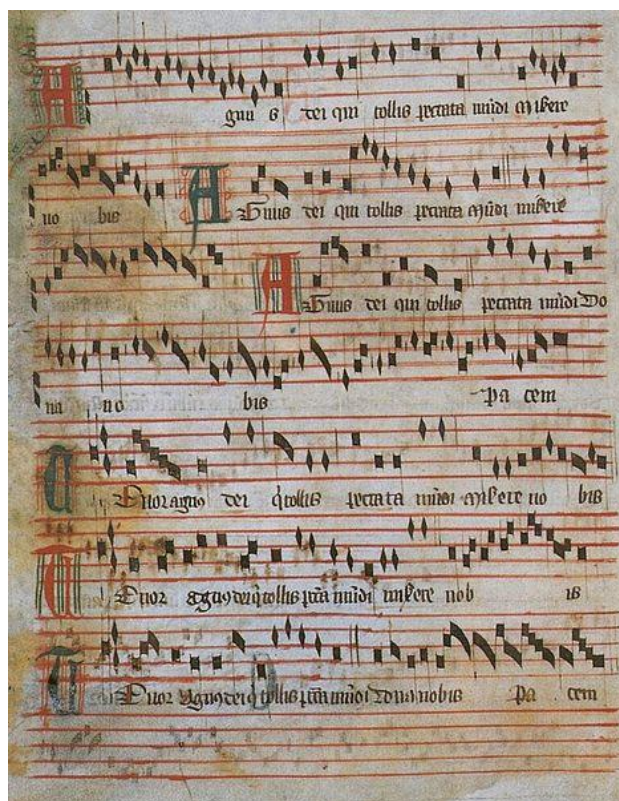 Agnus dei qui tollis peccata mūdi Misere
no bis Agnus dei qui tollis peccata Mūdi misere
Agnus dei qui tollis peccata mūdi Do
na no bis Pa cem
Tenor agnꝰ dei q̄ tollis peccata mūdi Misere no bis
Tenor agnꝰ dei q̄ tollis pc̄cā mūdi misere nob is
Tenor Agnꝰ dei q̄ tollis pc̄cā mūdi Dona nobis Pa cem